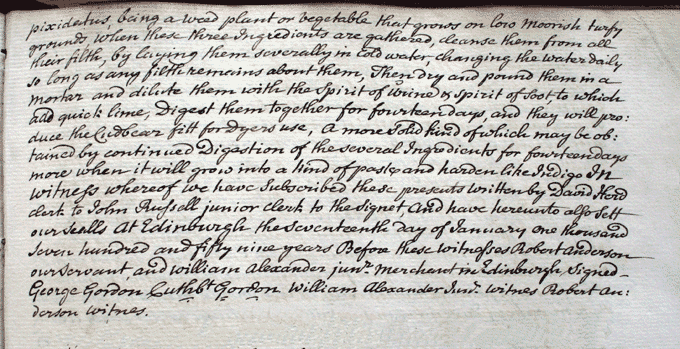 pixidatus, being a weed plant or vegetable that grows on low Moorish turfy
grounds when these three Ingredients are gathered, cleanse them from all
their filth, by laying them severally in Cold water, changing the water daily
so long as any filth remains about them, Then dry and pound them in a
mortar and dilute them with the Spirit of Urine & Spirit of Soot, to which
add quick lime, Digest them together for fourteen days, and they will pro:
duce the Cudbear fitt for Dyers use, A more Solid kind of which may be ob:
tained by continued Digestion of the several Ingredients for fourteen days
more when it will grow into a kind of paste and harden like Indigo In
witness whereof we have Subscribed these presents written by David Herd
clerk to John Russell junior clerk to the signet, And have hereunto also Sett
our Sealls At Edinburgh the seventeenth Day of January one thousand
Seven hundred and fifty nine years Before these Witnesses Robert Anderson
our Servant and William Alexander junr. Merchant in Edinburgh Signed
George Gordon Cuthbt Gordon William Alexander Junr. witnes Robert An:
derson witnes.